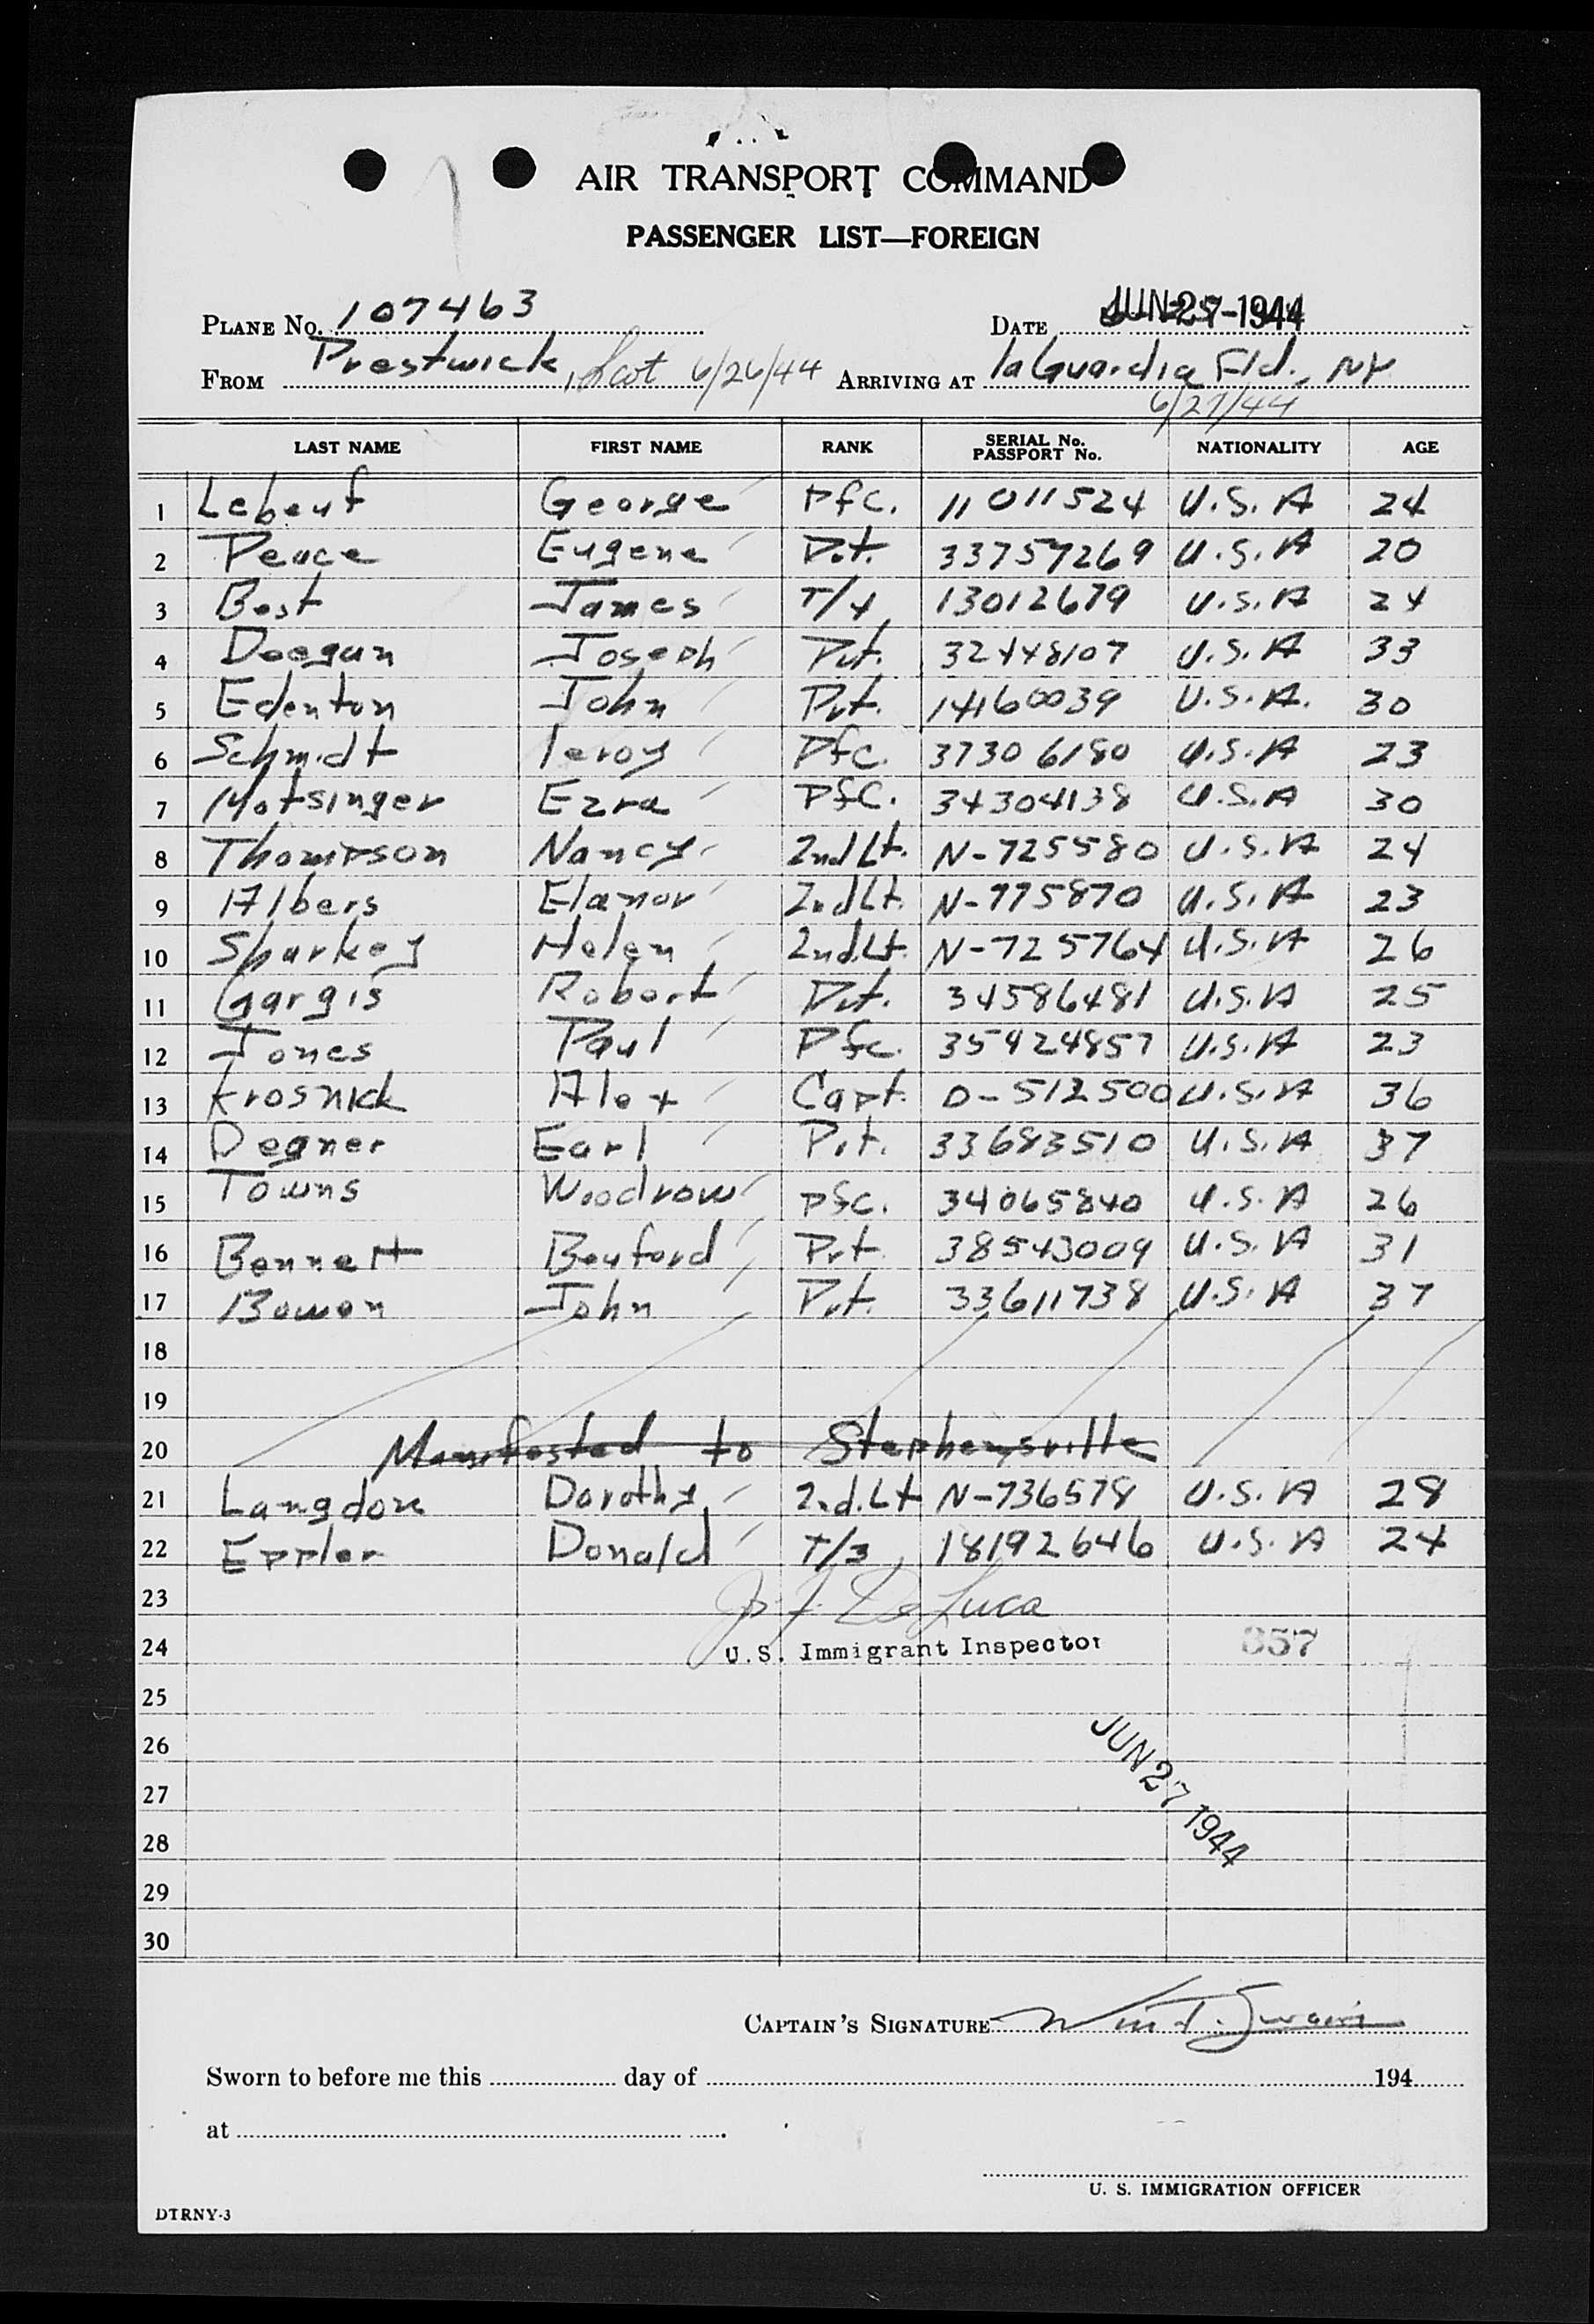 AIR TRANSPORT COMMAND
PASSENGER LIST—FOREIGN
PLANE NO. 107463 DATE JUN 27-1944
FROM Prestwick, Scot 6/26/44 ARRIVING AT laGuardia Fld., NY
6/27/44
LAST NAME FIRST NAME RANK SERIAL No. PASSPORT No. NATIONALITY AGE
1 Lebeuf George Pfc. 11011524 U.S.A 24
2 Peace Eugene Pvt. 33757269 U.S.A 20
3 Best James T/4 13012679 U.S.A 24
4 Deegan Joseph Pvt. 32448107 U.S.A 33
5 Edenton John Pvt. 14160039 U.S.A. 30
6 Schmidt leroy Pfc. 37306180 U.S.A 23
7 Motsinger Ezra Pfc. 34304138 U.S.A 30
8 Thompson Nancy 2nd Lt. N-725580 U.S.A 24
9 Albers Elanor 2nd Lt. N-775870 U.S.A 23
10 Sharkey Helen 2nd.Lt. N-725764 U.S.A 26
11 Gargis Robert Pvt. 34586481 U.S.A 25
12 Jones Paul Pfc. 35924857 U.S.A 23
13 Krosnick Alex Capt. O-512500 U.S.A 36
14 Degner Earl Pvt. 33683510 U.S.A 37
15 Towns Woodrow Pfc. 34065840 U.S.A 26
16 Bennett Beuford Pvt 38543009 U.S.A 31
17 Bowen John Pvt. 33611738 U.S.A 37
18
19
20 Manifested to Stephensville
21 Langdon Dorothy 2nd.Lt N-736578 U.S.A 28
22 Eppler Donald T/3 18192646 U.S.A 24
23 De Luca
24 U.S. Immigrant Inspector 857
25
26
JUN 27 1944
27
28
29
30
CAPTAIN'S SIGNATURE Wm T. Swain
Sworn to before me this day of 194
at
U. S. IMMIGRATION OFFICER
DTRNY-3